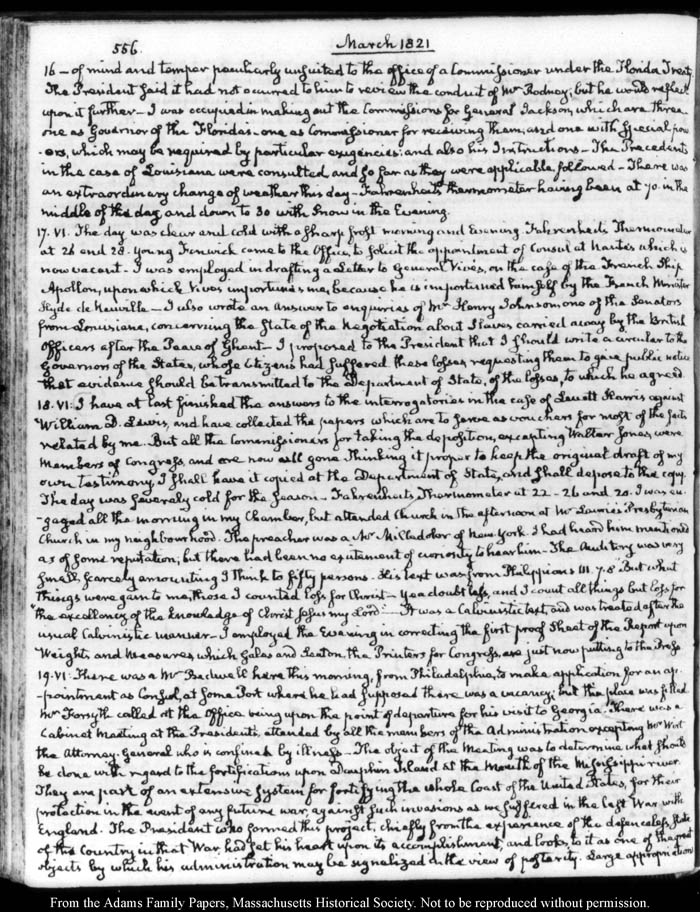 556.
March 1821
16 – of mind and temper peculiarly unsuited to the office of a Commissioner under the Florida Treaty
The President said it had not occurred to him to review the conduct of Mr Rodney; but he would reflect
upon it further – I was occupied in making out the Commissions for General Jackson, which are three
one as Governor of the Floridas – one as Commissioner for receiving them, and one with special pow
-ers, which may be required by particular exigencies: and also his Instructions – The Precedents
in the case of Louisiana were consulted and so far as they were applicable, followed – There was
an extraordinary change of weather this day – Fahrenheit's thermometer having been at 70. in the
middle of the day, and down to 30 with snow in the Evening.
17. VI. The day was clear and cold with a sharp frost morning and Evening. Fahrenheit's Thermometer
at 26 and 28. Young Fenwick came to the Office, to solicit the appointment of Consul at Nantes which is
now vacant – I was employed in drafting a Letter to General Vives, on the case of the French Ship
Apollon, upon which Vives importunes me, because he is importuned himself by the French Minister
Hyde de Neuville – I also wrote an answer to enquiries of Mr Henry Johnson, one of the Senators
from Louisiana, concerning the state of the Negotiation about Slaves carried away by the British
Officers after the Peace of Ghent – I proposed to the President that I should write a circular to the
Governors of the States, whose Citizens had suffered these losses, requesting them to give public notice
that evidence should be transmitted to the Department of State, of the losses, to which he agreed.
18. VI. I have at last finished the answers to the interrogatories in the case of Levett Harris against
William D. Lewis, and have collected the papers which are to serve as vouchers for most of the facts
related by me. But all the Commissioners for taking the deposition, excepting Walter Jones, were
members of Congress, and are now all gone. Thinking it proper to keep the original draft of my
own testimony, I shall have it copied at the Department of State, and shall depose to the copy.
The day was severely cold for the season – Fahrenheit's Thermometer at 22 – 26 and 20. I was en-
-gaged all the morning in my Chamber, but attended Church in the afternoon at Mr Laurie's Presbyterian
Church in my neighbourhood. The preacher was a Mr Milledolar of New York. I had heard him mentioned
as of some reputation; but there had been no excitement of curiosity to hear him – The Auditory was very
small, scarcely amounting I think to fifty persons. His text was from Philippians III. 7. 8. "But what
things were gain to me, those I counted loss for Christ – Yea doubtless, and I count all things but loss for
"the excellency of the knowledge of Christ Jesus my Lord" – It was a Calvinistic text, and was treated after the
usual Calvinistic manner – I employed the Evening in correcting the first proof sheet of the Report upon
Weights and Measures, which Gales and Seaton, the Printers for Congress, are just now putting to the Press
19. VI. There was a Mr Bedwell here this morning, from Philadelphia, to make application for an ap-
-pointment as Consul, at some Port where he had supposed there was a vacancy; but the place was filled
Mr Forsyth called at the Office being upon the point of departure for his visit to Georgia. There was a
Cabinet Meeting at the Presidents, attended by all the members of the Administration excepting Mr Wirt
the Attorney-General who is confined by illness – The object of the Meeting was to determine what should
be done with regard to the fortifications upon Dauphin Island at the Mouth of the Mississippi river
They are part of an extensive system for fortifying the whole Coast of the United States, for their
protection in the event of any future war, against such invasions as we suffered in the last War with
England. The President who formed this project, chiefly from the experience of the defenceless state
of this Country in that War, had set his heart upon its accomplishment, and looks to it as one of the great
objects by which his administration may be signalized in the view of posterity. Large appropriations
From the Adams Family Papers, Massachusetts Historical Society. Not to be reproduced without permission.